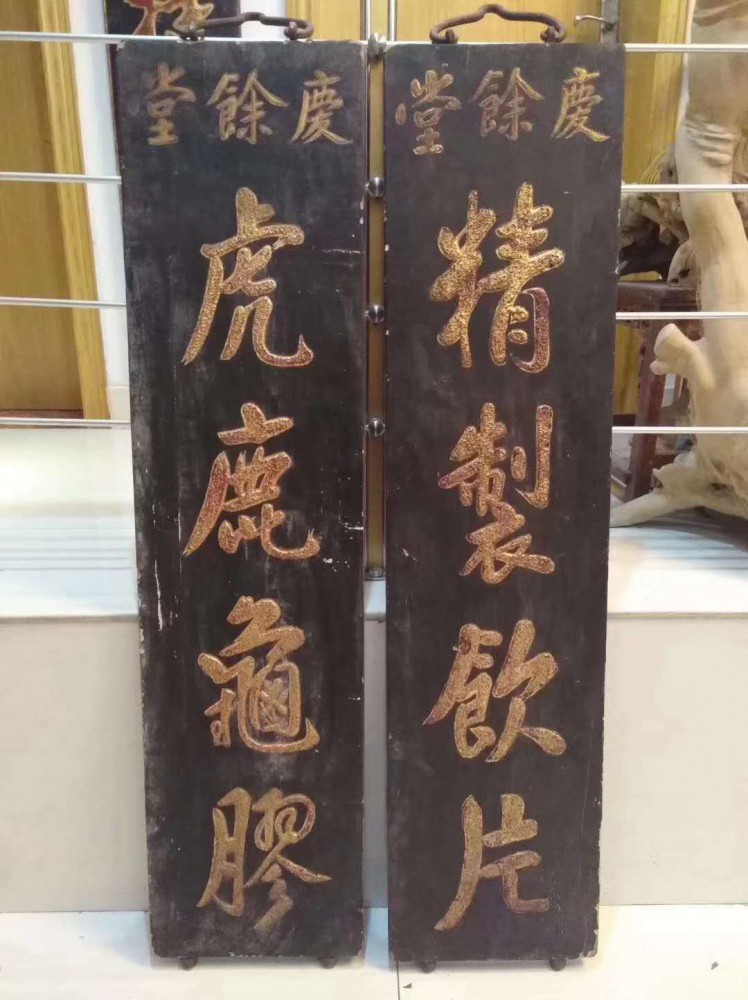 慶餘堂
精製飲片
慶餘堂
虎鹿龜膠